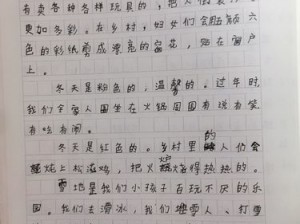 有卖各种各样玩具的，把人们
更加多彩。在乡村，妇女们会用五颜六
色的彩纸剪成漂亮的窗花，贴在窗户
上。
冬天是粉色的，温馨的。过年时，
我们全家人围坐在火锅周围有说有笑，
有吃有闹。
冬天是红色的。乡村里的人们会
在炕上松活鸡，把火炉烧得热热的。
雪地是我们小孩子百玩不厌的乐
园。我们去滑冰，我们堆雪人、打雪